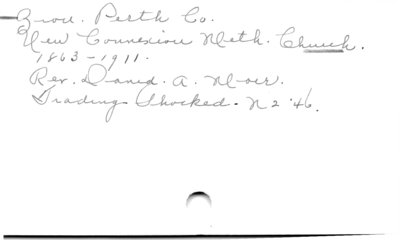 Perth Co.
New Connexion Meth. Church.
1863-1911.
Rev. David. A. Moir.
Trading Shocked. N 2 '46.